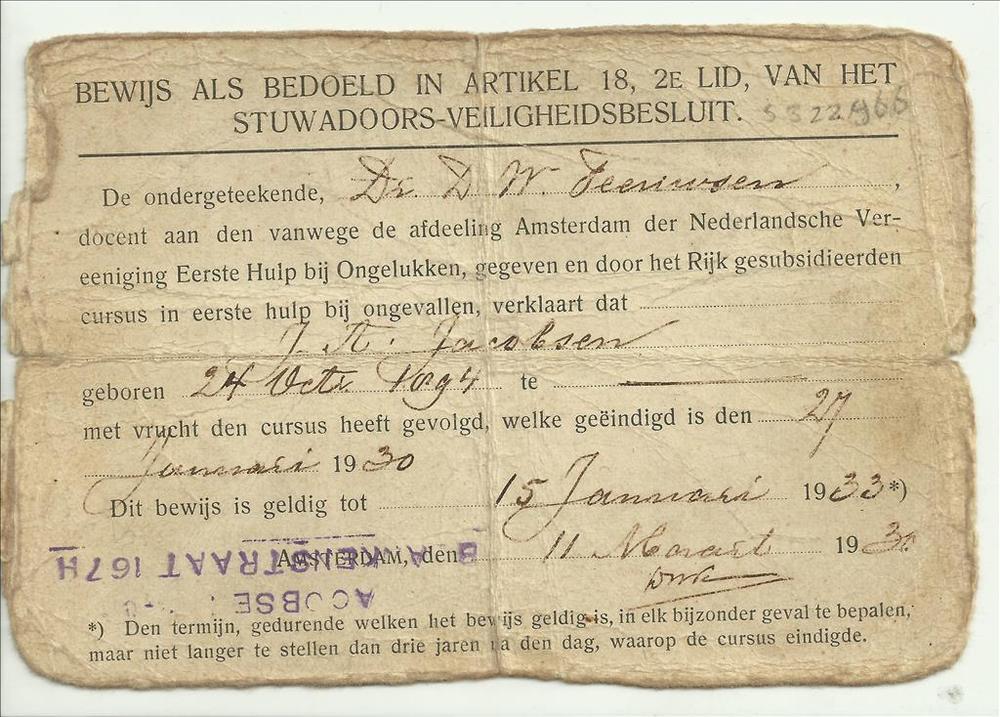 BEWIJS ALS BEDOELD IN ARTIKEL 18, 2E LID, VAN HET
STUWADOORS-VEILIGHEIDSBESLUIT.
De ondergeteekende, Dr. D W. Teeuwsen,
docent aan den vanwege de afdeeling Amsterdam der Nederlandsche Ver-
eeniging Eerste Hulp bij Ongelukken, gegeven en door het Rijk gesubsidieerden
cursus in eerste hulp bij ongevallen, verklaart dat
J. A. Jacobsen
geboren 24 Octr 1894 te
met vrucht den cursus heeft gevolgd, welke geëindigd is den 27
Januari 1930
Dit bewijs is geldig tot 15 Januari 1933*)
AMSTERDAM, den 11 Maart 1930
KENSTRAAT 167H
ACOBSE
*) Den termijn, gedurende welken het bewijs geldig is, in elk bijzonder geval te bepalen,
maar niet langer te stellen dan drie jaren na den dag, waarop de cursus eindigde.